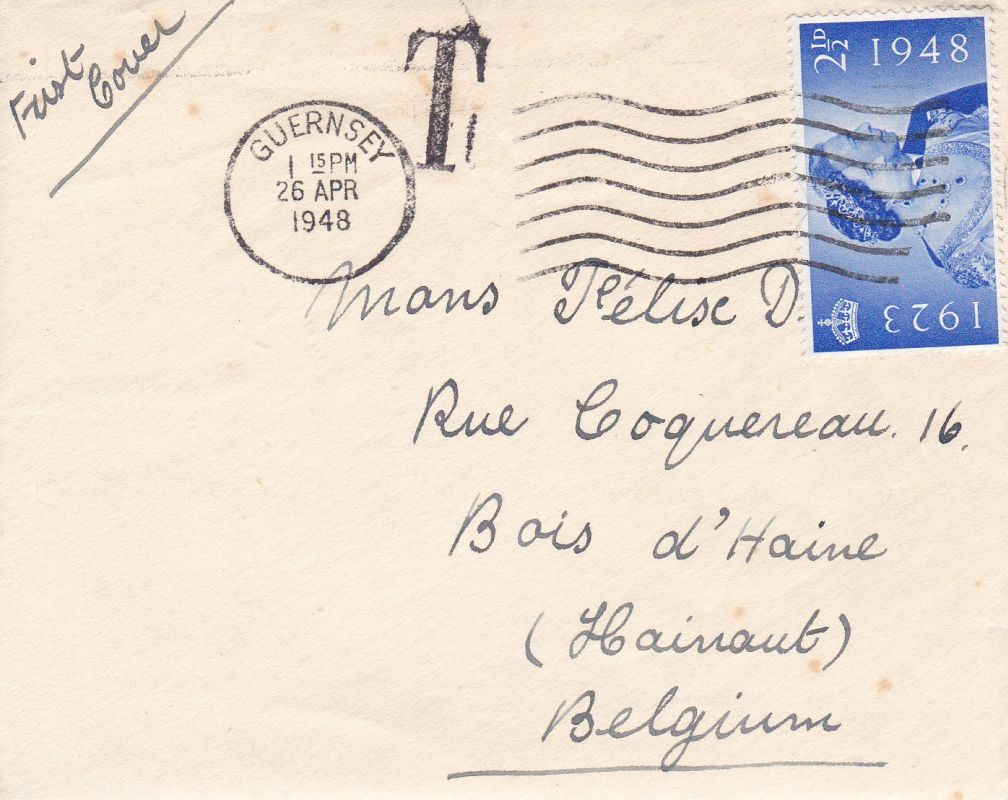 First
Cover
T
GUERNSEY
1 15 PM
26 APR
1948
2½D 1948
1923
Mons Félix D.
Rue Coquereau. 16.
Bois d'Haine
(Hainaut)
Belgium